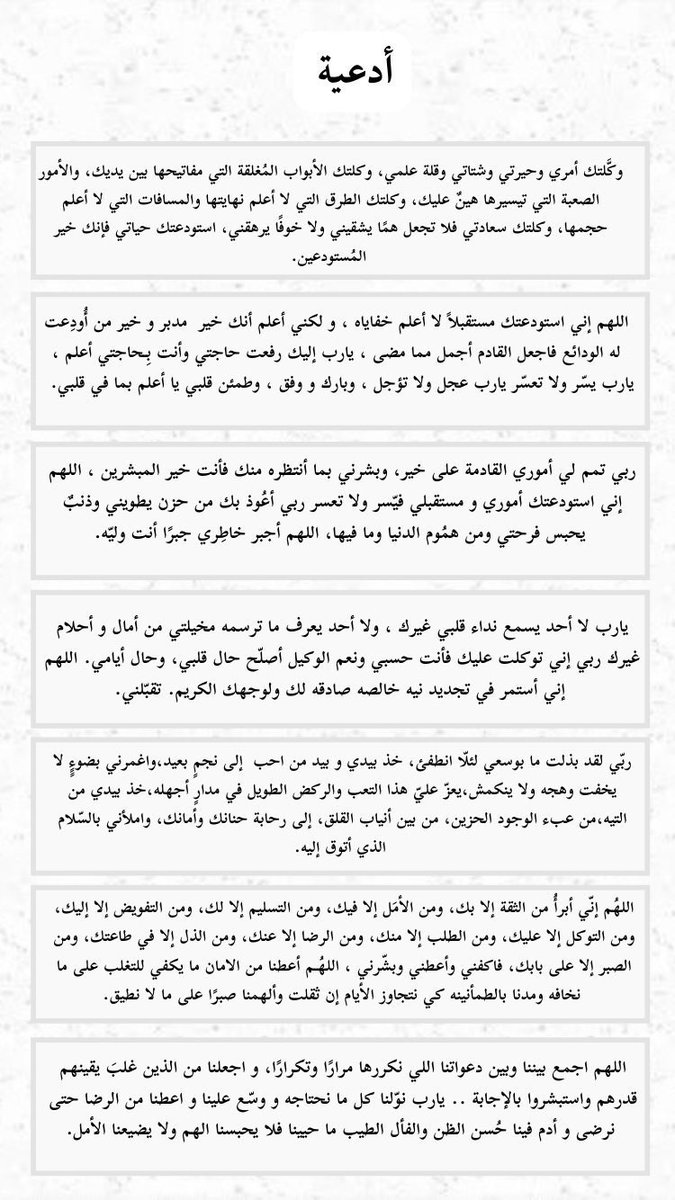 أدعية
وكَّلتك أمري وحيرتي وشتاتي وقلة علمي، وكلتك الأبواب المُغلقة التي مفاتيحها بين يديك، والأمور
الصعبة التي تيسيرها هينٌ عليك، وكلتك الطرق التي لا أعلم نهايتها والمسافات التي لا أعلم
حجمها، وكلتك سعادتي فلا تجعل همًا يشقيني ولا خوفًا يرهقني، استودعتك حياتي فإنك خير
المُستودعين.
اللهم إني استودعتك مستقبلاً لا أعلم خفاياه ، و لكني أعلم أنك خير مدبر و خير من أُودِعت
له الودائع فاجعل القادم أجمل مما مضى ، يارب إليك رفعت حاجتي وأنت بِحاجتي أعلم ،
يارب يسّر ولا تعسّر يارب عجل ولا تؤجل ، وبارك و وفق ، وطمئن قلبي يا أعلم بما في قلبي.
ربي تمم لي أموري القادمة على خير، وبشرني بما أنتظره منك فأنت خير المبشرين ، اللهم
إني استودعتك أموري و مستقبلي فيّسر ولا تعسر ربي أعُوذ بك من حزن يطويني وذنبٌ
يحبس فرحتي ومن همُوم الدنيا وما فيها، اللهم أجبر خاطِري جبرًا أنت وليّه.
يارب لا أحد يسمع نداء قلبي غيرك ، ولا أحد يعرف ما ترسمه مخيلتي من أمال و أحلام
غيرك ربي إني توكلت عليك فأنت حسبي ونعم الوكيل أصلّح حال قلبي، وحال أيامي. اللهم
إني أستمر في تجديد نيه خالصه صادقه لك ولوجهك الكريم. تقبّلني.
ربّي لقد بذلت ما بوسعي لئلّا انطفئ، خذ بيدي و بيد من احب إلى نجمٍ بعيد،واغمرني بضوءٍ لا
يخفت وهجه ولا ينكمش،يعزّ عليّ هذا التعب والركض الطويل في مدارٍ أجهله،خذ بيدي من
التيه،من عبء الوجود الحزين، من بين أنياب القلق، إلى رحابة حنانك وأمانك، واملأني بالسّلام
الذي أتوق إليه.
اللهُم إنّي أبرأُ من الثقة إلا بك، ومن الأمَل إلا فيك، ومن التسليم إلا لك، ومن التفويض إلا إليك،
ومن التوكل إلا عليك، ومن الطلب إلا منك، ومن الرضا إلا عنك، ومن الذل إلا في طاعتك، ومن
الصبر إلا على بابك، فاكفني وأعطني وبشّرني ، اللهُـم أعطنا من الامان ما يكفي للتغلب على ما
نخافه ومدنا بالطمأنينه كي نتجاوز الأيام إن ثقلت وألهمنا صبرًا على ما لا نطيق.
اللهم اجمع بيننا وبين دعواتنا اللي نكررها مرارًا وتكرارًا، و اجعلنا من الذين غلبَ يقينهم
قدرهم واستبشروا بالإجابة .. يارب نوّلنا كل ما نحتاجه و وسّع علينا و اعطنا من الرضا حتى
نرضى و أدم فينا حُسن الظن والفأل الطيب ما حيينا فلا يحبسنا الهم ولا يضيعنا الأمل.